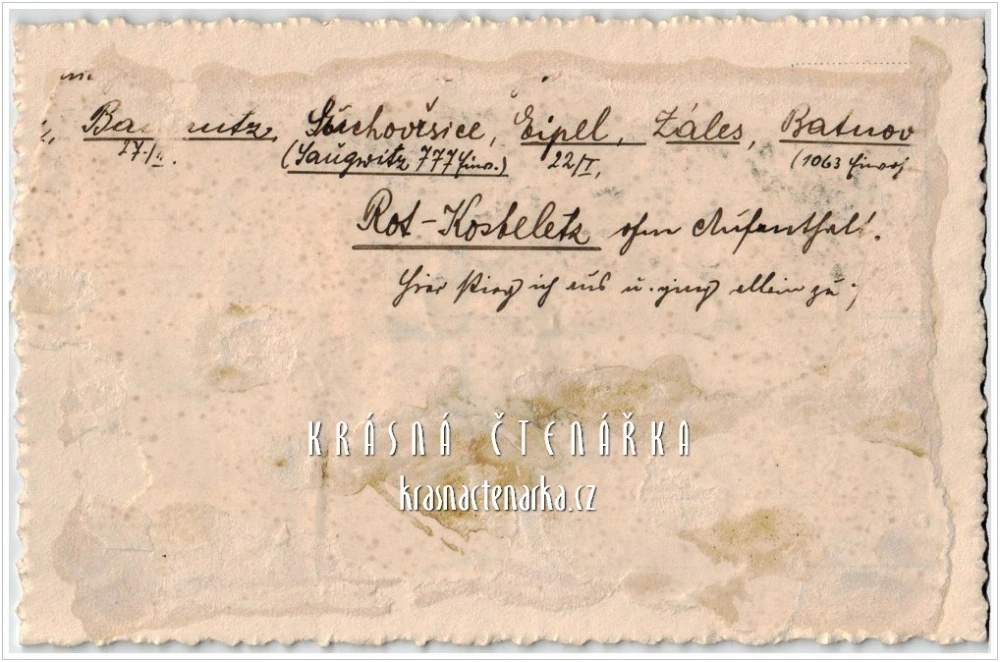 Ba nitz, Suchovršice, Eipel, Záles, Batnov
(Saugwitz 777 Einw.) 22/I, (1063 Einw
Rot-Kosteletz ohne Aufenthalt.
Hier stieg ich aus u. ging allein zu;
KRÁSNÁ ČTENÁŘKA
krasnactenarka.cz